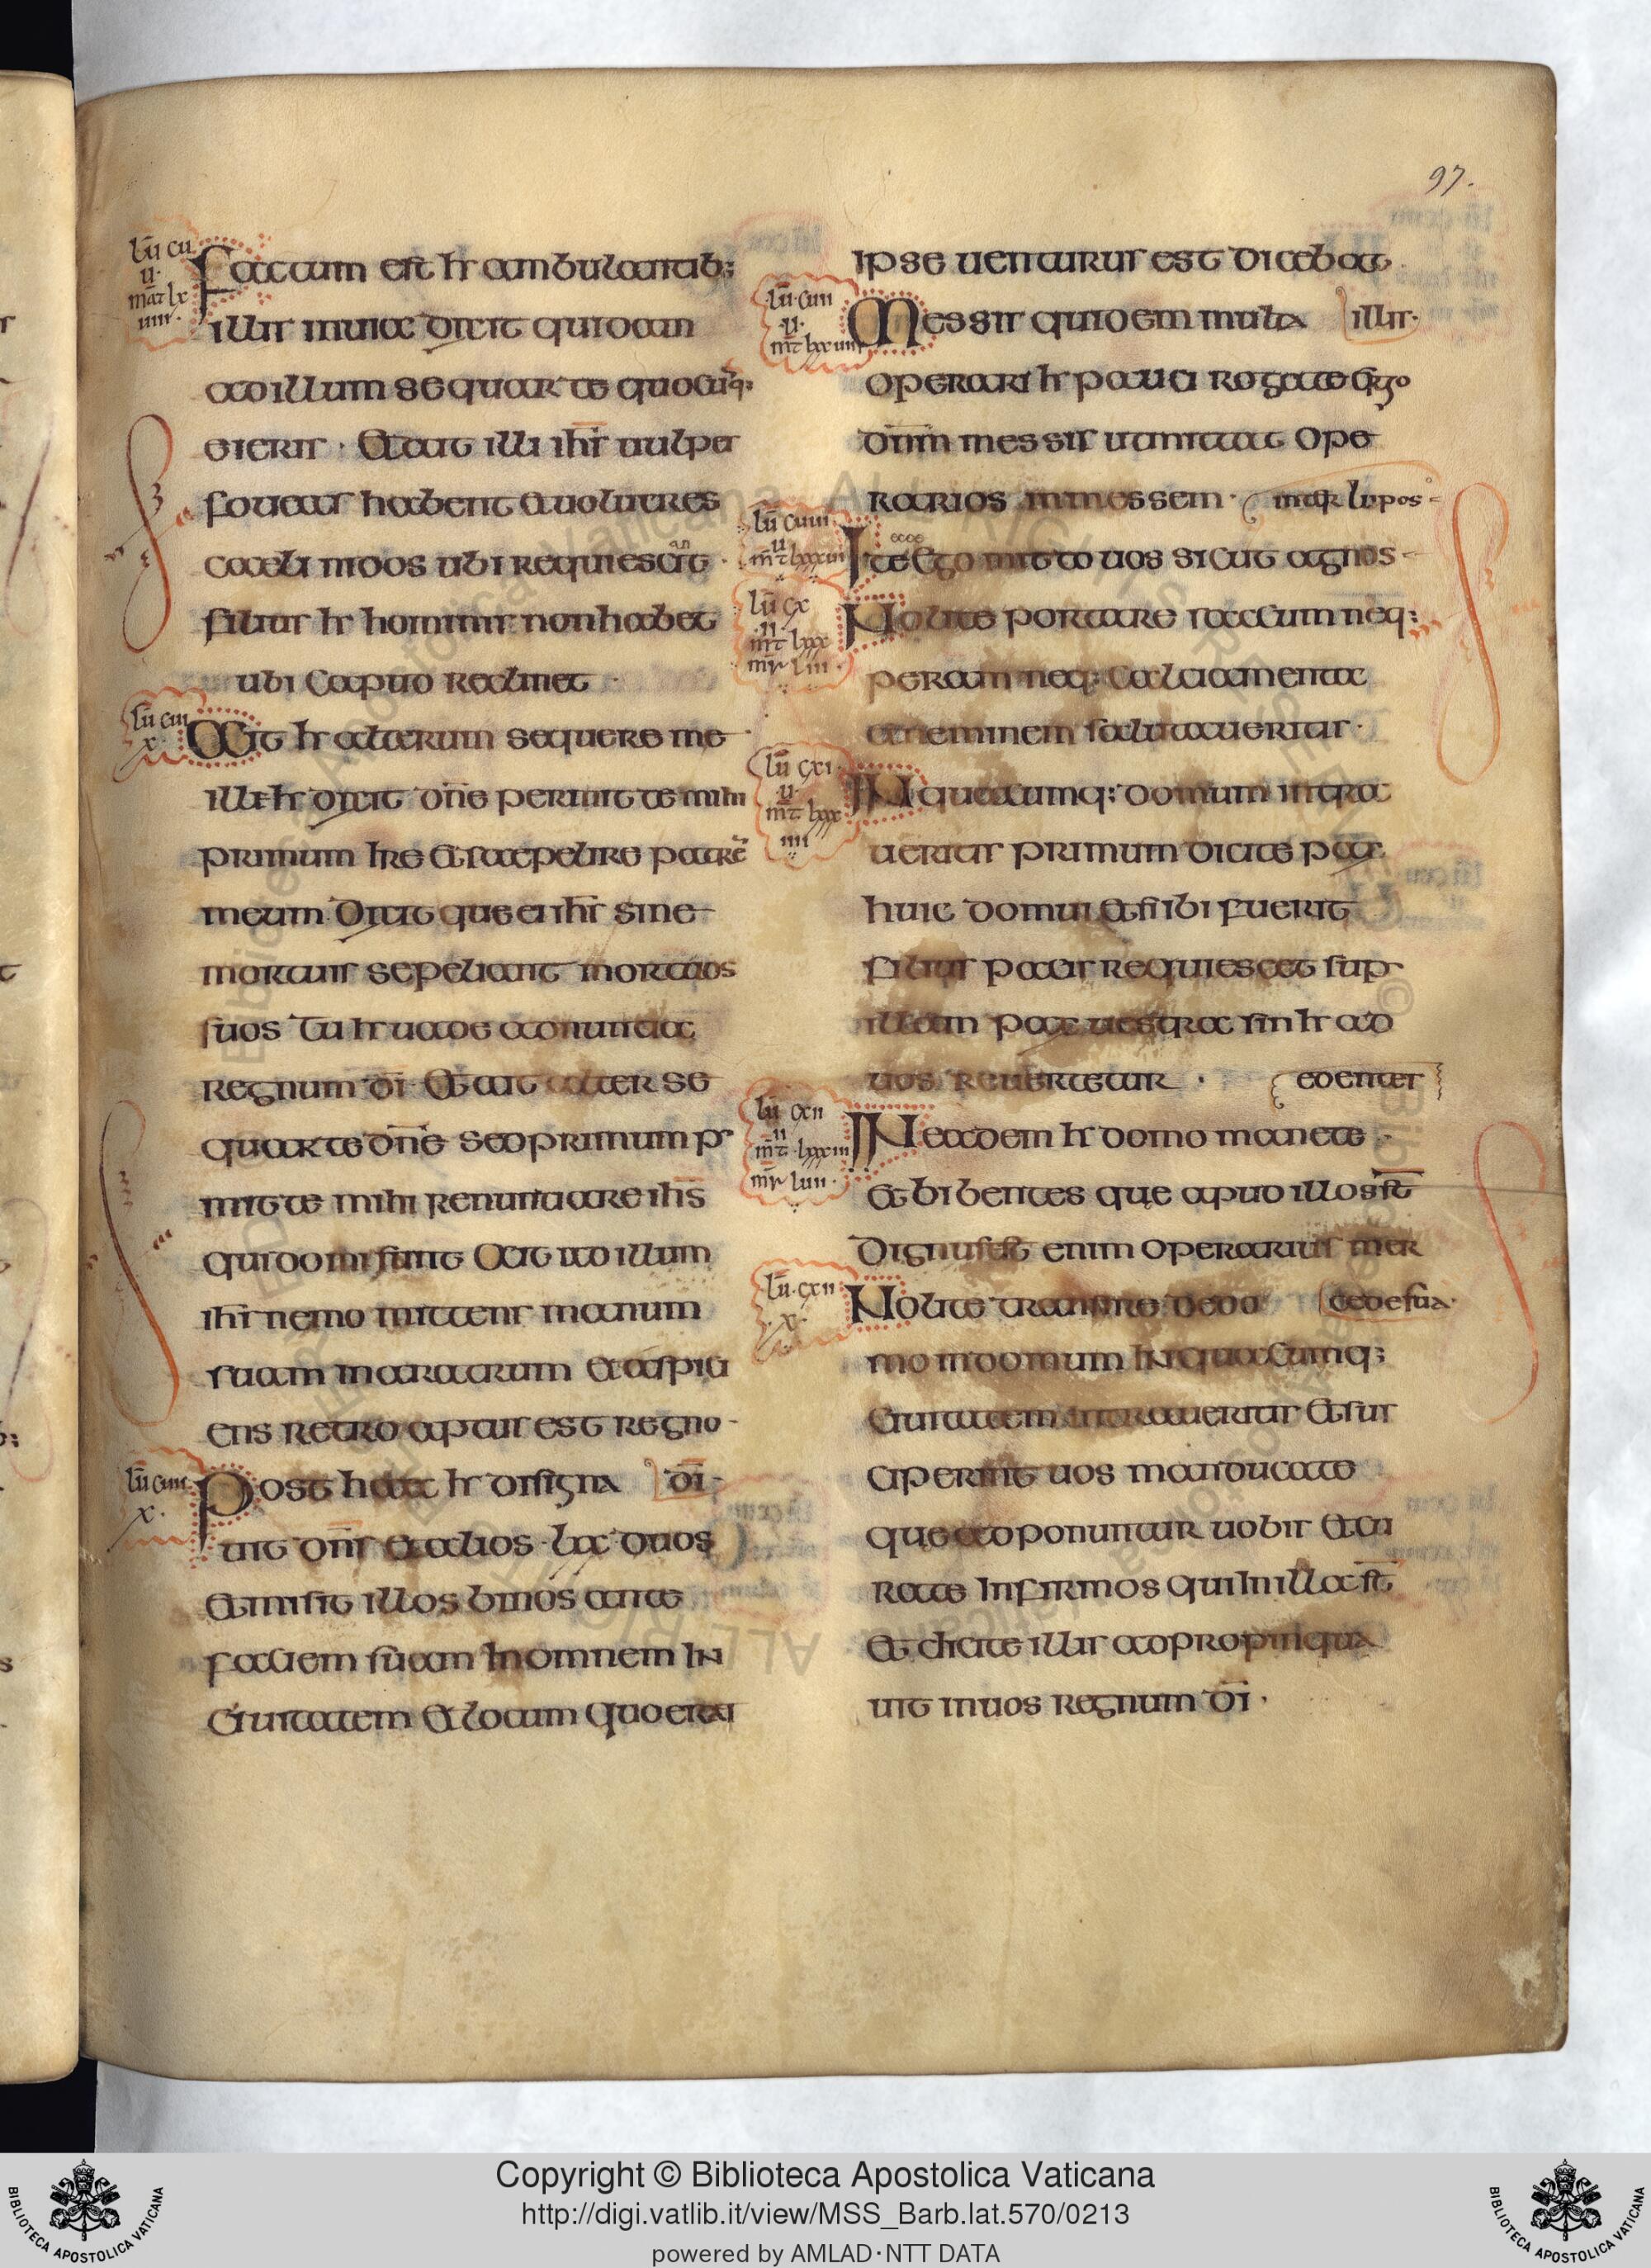 97.
lū cu
u.
mat lx
uiii.
Factum est ħ ambulantib;
illis inuia dixit quidam
ad illum sequar te quocūq;
eieris · Et ait illi ihs uulpes
foueas habent et uolucres
caeli nidos ubi requiescant ·
filius ħ hominis non habet
ubi caput reclinet ·
x
Ait ħ alterum sequere me
ille ħ dixit dn̄e permitte mihi
primum ire et sepelire patrē
meum Dixitque ei ihs sine
mortuis sepeliant mortuos
suos Tu ħ uade adnuntia
regnum dī Et ait alter se
quar te dn̄e sed primum per
mitte mihi renuntiare ihs
qui domi sunt Ait ad illum
ihs nemo mittens manum
suam in aratrum et aspici
ens retro aptus est regno
x.
Post haec ħ disigna dī
uit dn̄s et alios lxx duos
Et misit illos binos ante
faciem suam in omnem in
ciuitatem et locum quo erat
ipse uenturus est dicebat
u.
Messis quidem multa illis
operari ħ pauci rogate ergo
dnm messis ut mittat ope
rarios in messem · inter lupos
Ite ecce ego mitto uos sicut agnos
lū cx
ii
mt lxxx
mr liii
Nolite portare saccum neq;
peram neq; calciamenta
et neminem salutaueritis ·
lū cxi
u
mt lxxx
iiii
IN quacumq; domum intra
ueritis primum dicite pax
huic domui et si ibi fuerit
filius pacis requiescet sup
illam pax uestra sin ħ ad
uos reuertetur · edentes
lū cxii
ii
mt lxxxiii
mr liiii
IN eadem ħ domo manete
Et bibentes que apud illos st
Dignus est enim operarius mer
lū cxii
x
Nolite transire dedo cede sua
mo in domum In quacumq;
Ciuitatem intraueritis et sus
ciperint uos manducate
que adponuntur uobis et cu
rate infirmos qui in illa st
Et dicite illis adpropinqua
uit in uos regnum dī ·
Copyright © Biblioteca Apostolica Vaticana
http://digi.vatlib.it/view/MSS_Barb.lat.570/0213
powered by AMLAD·NTT DATA
BIBLIOTECA APOSTOLICA VATICANA
BIBLIOTECA APOSTOLICA VATICANA